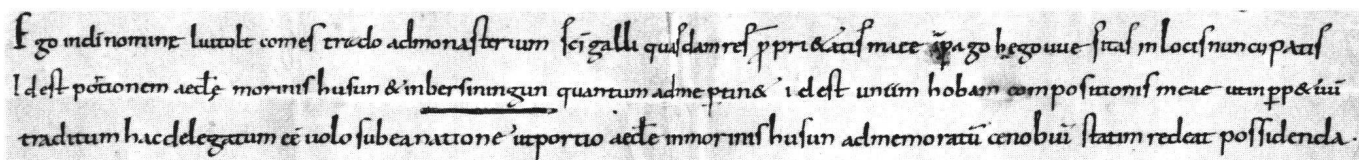 Ego indi nomine liutolt comes trado admonasterium sci galli quasdam res ppri&atis meae in pago hegouue sitas inlocis nuncupatis
Idest potionem aecłę morinishusun & inbersiningun quantum adme ptin& idest unum hobam compositionis meae utin pp&uū
traditum hac delegatum eē uolo subea natione utportio aecłę inmorinishusun admemoratū cenobiuī statim redeat possidenda .